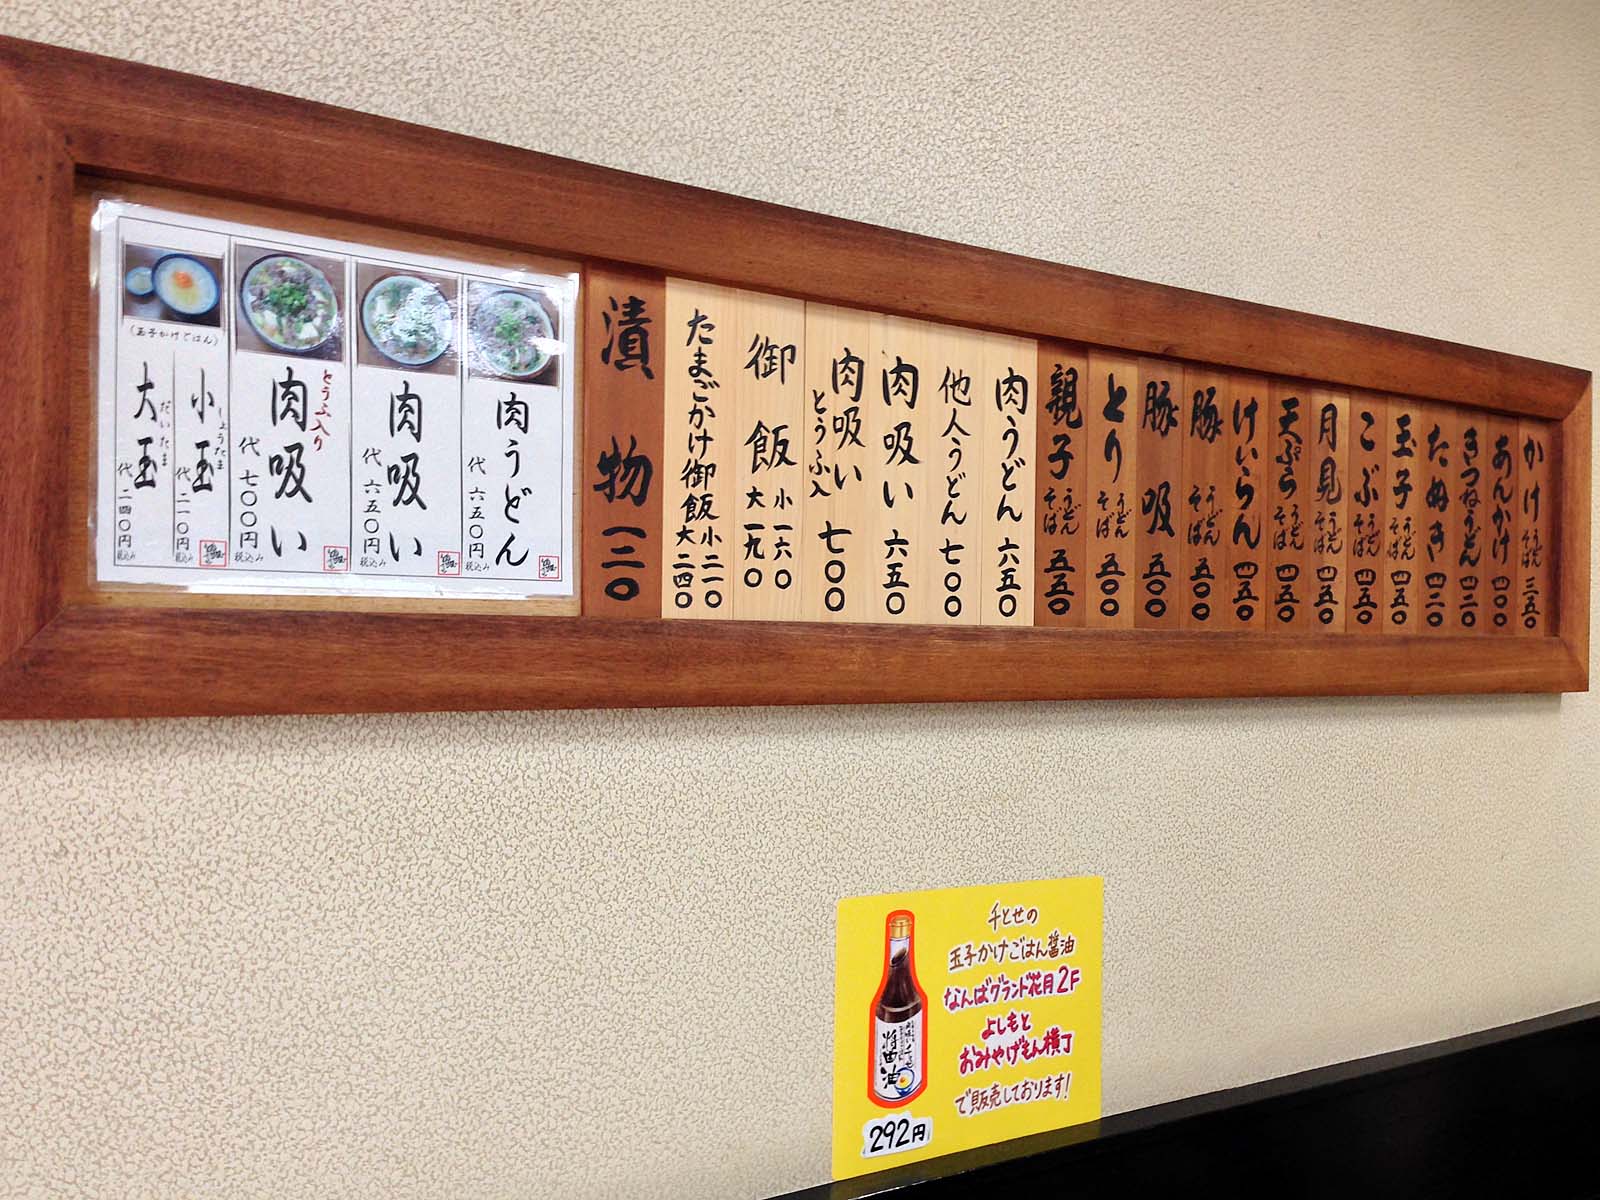 かけ うどん そば 三五〇
あんかけ 四〇〇
きつねうどん 四二〇
たぬき 四二〇
玉子 うどん そば 四五〇
こぶ うどん そば 四五〇
月見 うどん そば 四五〇
天ぷら うどん そば 四五〇
けいらん 四五〇
豚 うどん そば 五〇〇
豚吸 五〇〇
とり うどん そば 五〇〇
親子 うどん そば 五五〇
肉うどん 六五〇
他人うどん 七〇〇
肉吸い 六五〇
肉吸い とうふ入 七〇〇
御飯 小一六〇 大一九〇
たまごかけ御飯 小二一〇 大二四〇
漬物 一三〇
肉うどん
代 六五〇円
税込み
肉吸い
代 六五〇円
税込み
とうふ入り
肉吸い
代 七〇〇円
税込み
(玉子かけごはん)
小玉 しょうたま
代 二一〇円
税込み
大玉 だいたま
代 二四〇円
税込み
千とせの
玉子かけごはん醤油
なんばグランド花月2F
よしもと
おみやげもん横丁
で販売しております!
醤油
292円